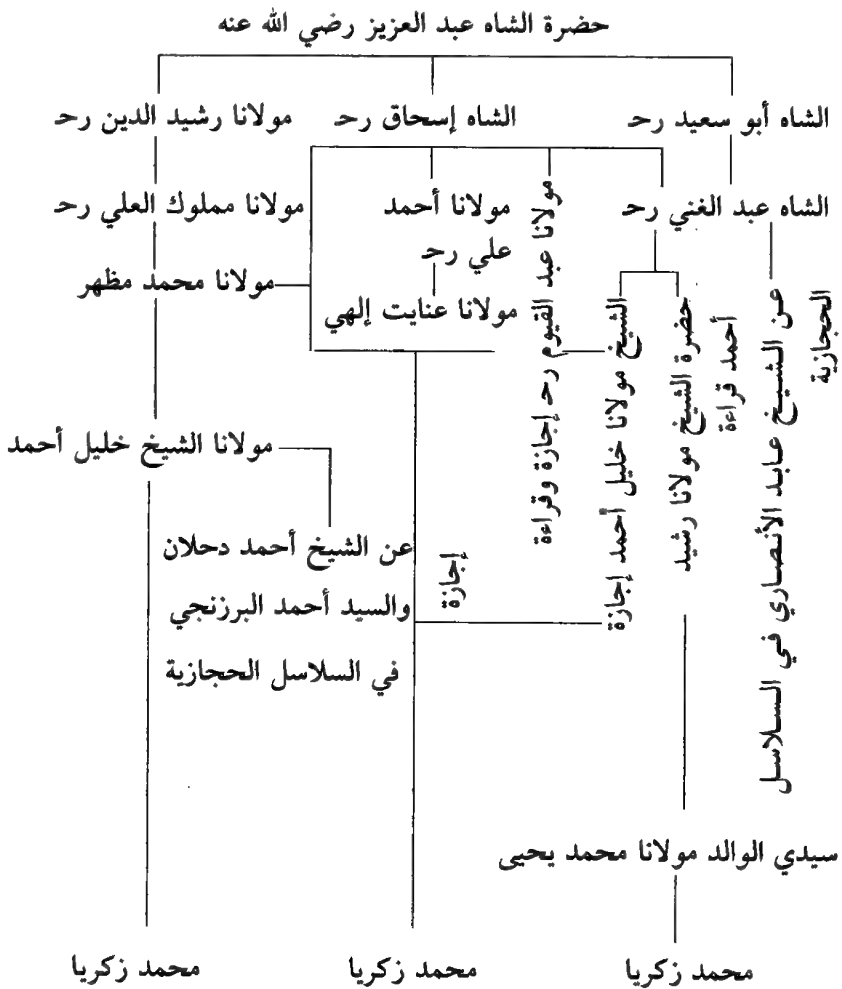 حضرة الشاه عبد العزيز رضي الله عنه
الشاه أبو سعيد رحـ
الشاه إسحاق رحـ
مولانا رشيد الدين رحـ
الشاه عبد الغني رحـ
مولانا أحمد
علي رحـ
مولانا مملوك العلي رحـ
مولانا عبد القيوم رحـ إجازة وقراءة
مولانا محمد مظهر
مولانا عنايت إلهي
عن الشيخ عابد الأنصاري في السلاسل
الحجازية
حضرة الشيخ مولانا رشيد
أحمد قراءة
الشيخ مولانا خليل أحمد إجازة
مولانا الشيخ خليل أحمد
عن الشيخ أحمد دحلان
والسيد أحمد البرزنجي
في السلاسل الحجازية
إجازة
سيدي الوالد مولانا محمد يحيى
محمد زكريا
محمد زكريا
محمد زكريا